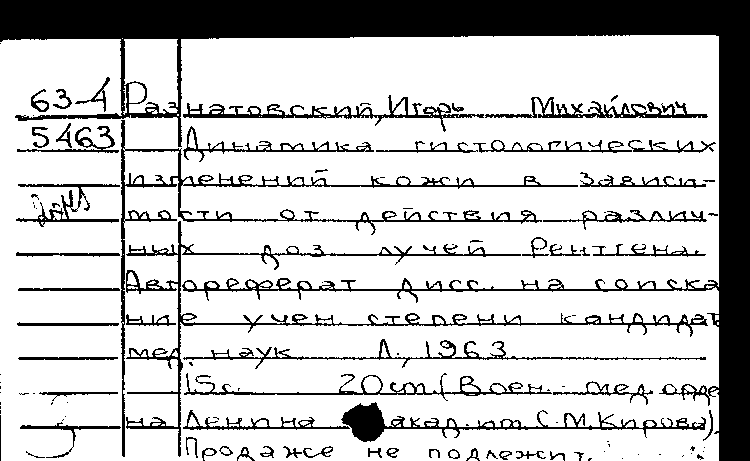 63-4 Разнатовский, Игорь Михайлович
5463 Динамика гистологических
изменений кожи в зависи-
мости от действия различ-
ных доз лучей Рентгена.
Автореферат дисс. на соиска
ние учен. степени кандидат
мед. наук Л., 1963.
15с. 20см. (Воен.-мед. орде
на Ленина акад. им. С.М.Кирова).
Продаже не подлежит.